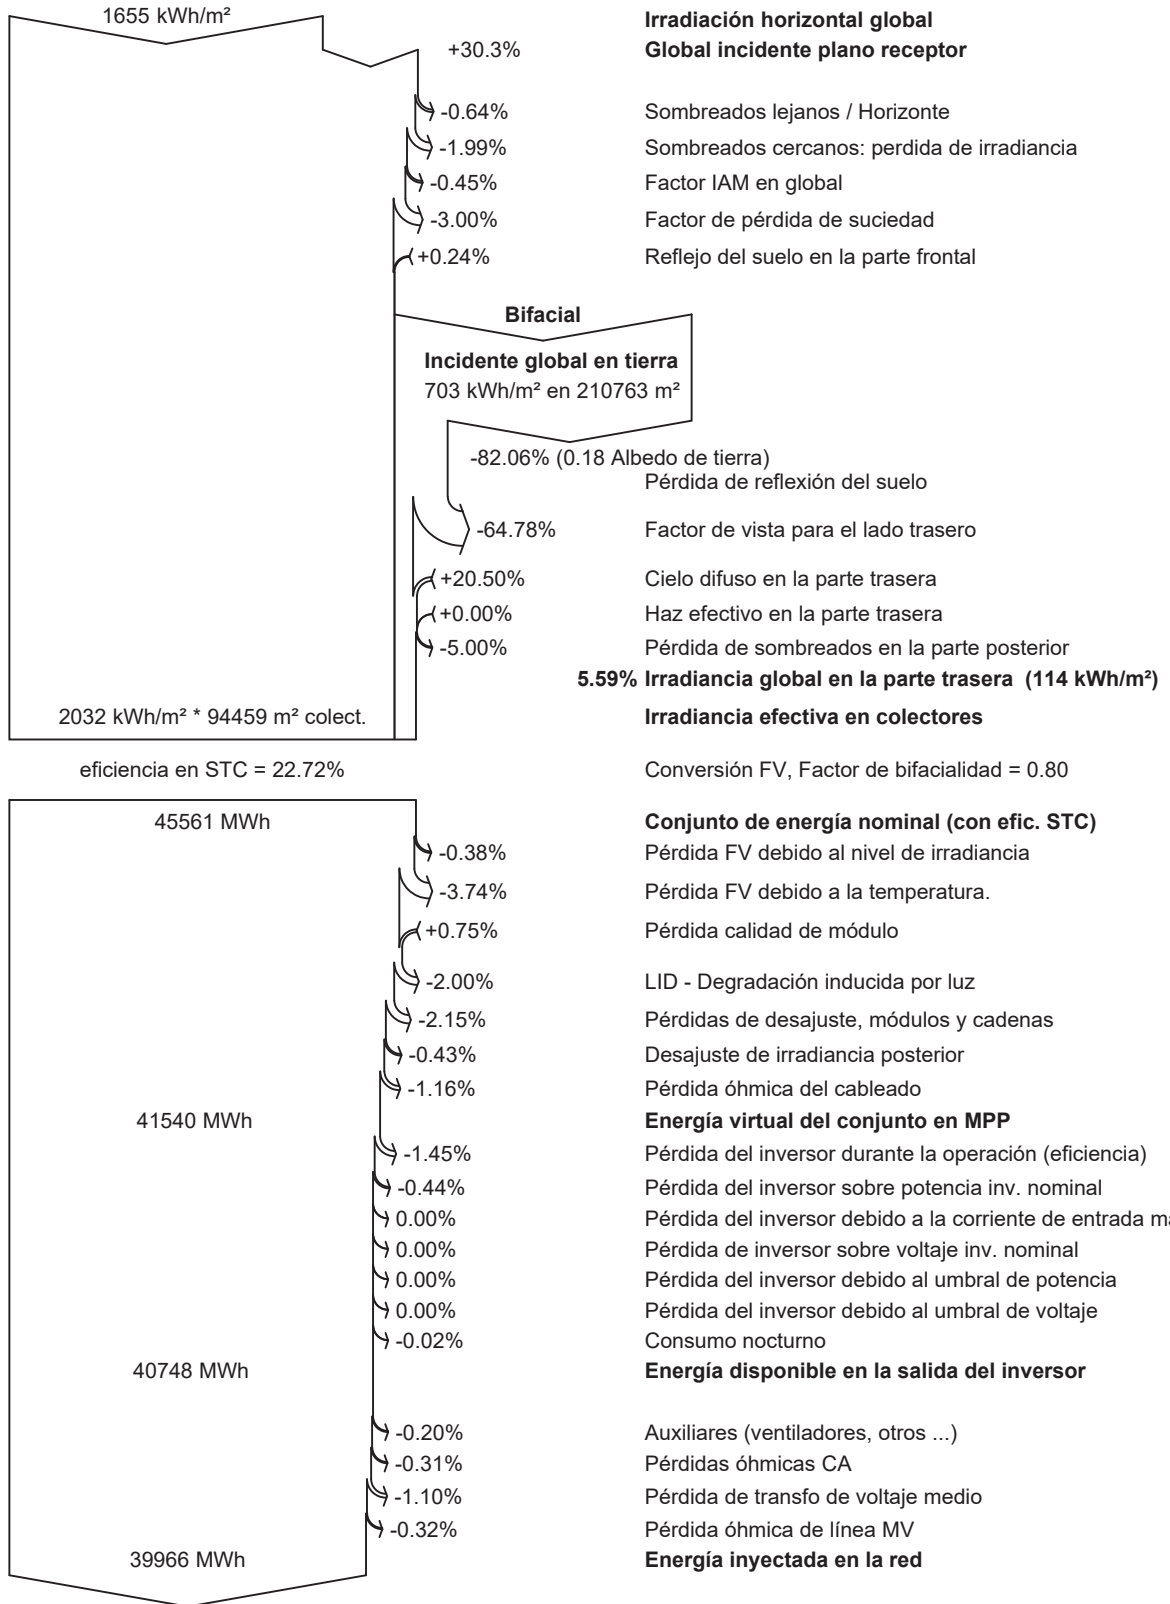 1655 kWh/m² Irradiación horizontal global
+30.3% Global incidente plano receptor
-0.64% Sombreados lejanos / Horizonte
-1.99% Sombreados cercanos: perdida de irradiancia
-0.45% Factor IAM en global
-3.00% Factor de pérdida de suciedad
+0.24% Reflejo del suelo en la parte frontal
Bifacial
Incidente global en tierra
703 kWh/m² en 210763 m²
-82.06% (0.18 Albedo de tierra)
Pérdida de reflexión del suelo
-64.78% Factor de vista para el lado trasero
+20.50% Cielo difuso en la parte trasera
+0.00% Haz efectivo en la parte trasera
-5.00% Pérdida de sombreados en la parte posterior
5.59% Irradiancia global en la parte trasera (114 kWh/m²)
2032 kWh/m² * 94459 m² colect. Irradiancia efectiva en colectores
eficiencia en STC = 22.72% Conversión FV, Factor de bifacialidad = 0.80
45561 MWh Conjunto de energía nominal (con efic. STC)
-0.38% Pérdida FV debido al nivel de irradiancia
-3.74% Pérdida FV debido a la temperatura.
+0.75% Pérdida calidad de módulo
-2.00% LID - Degradación inducida por luz
-2.15% Pérdidas de desajuste, módulos y cadenas
-0.43% Desajuste de irradiancia posterior
-1.16% Pérdida óhmica del cableado
41540 MWh Energía virtual del conjunto en MPP
-1.45% Pérdida del inversor durante la operación (eficiencia)
-0.44% Pérdida del inversor sobre potencia inv. nominal
0.00% Pérdida del inversor debido a la corriente de entrada
0.00% Pérdida de inversor sobre voltaje inv. nominal
0.00% Pérdida del inversor debido al umbral de potencia
0.00% Pérdida del inversor debido al umbral de voltaje
-0.02% Consumo nocturno
40748 MWh Energía disponible en la salida del inversor
-0.20% Auxiliares (ventiladores, otros ...)
-0.31% Pérdidas óhmicas CA
-1.10% Pérdida de transfo de voltaje medio
-0.32% Pérdida óhmica de línea MV
39966 MWh Energía inyectada en la red